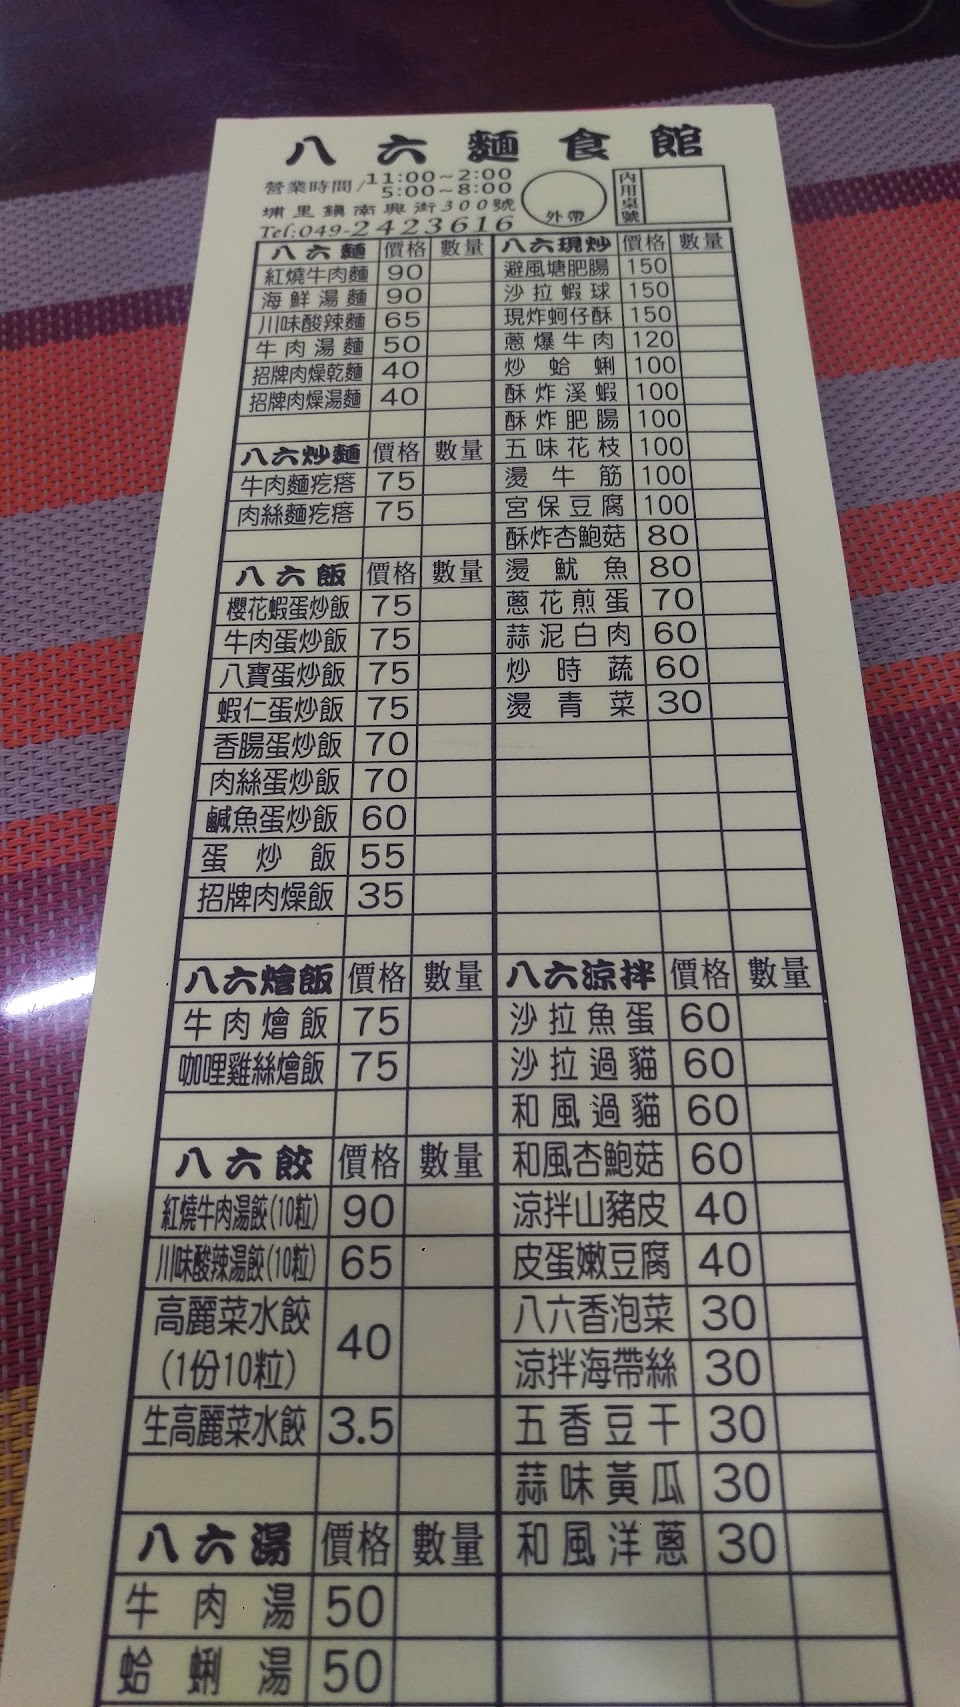 八六麵食館
營業時間/11:00~2:00
5:00~8:00
埔里鎮南興街300號
Tel:049-2423616
外帶
內用桌號
八六麵 價格 數量
紅燒牛肉麵 90
海鮮湯麵 90
川味酸辣麵 65
牛肉湯麵 50
招牌肉燥乾麵 40
招牌肉燥湯麵 40
八六炒麵 價格 數量
牛肉麵疙瘩 75
肉絲麵疙瘩 75
八六飯 價格 數量
櫻花蝦蛋炒飯 75
牛肉蛋炒飯 75
八寶蛋炒飯 75
蝦仁蛋炒飯 75
香腸蛋炒飯 70
肉絲蛋炒飯 70
鹹魚蛋炒飯 60
蛋炒飯 55
招牌肉燥飯 35
八六燴飯 價格 數量
牛肉燴飯 75
咖哩雞絲燴飯 75
八六餃 價格 數量
紅燒牛肉湯餃(10粒) 90
川味酸辣湯餃(10粒) 65
高麗菜水餃
(1份10粒) 40
生高麗菜水餃 3.5
八六湯 價格 數量
牛肉湯 50
蛤蜊湯 50
八六現炒 價格 數量
避風塘肥腸 150
沙拉蝦球 150
現炸蚵仔酥 150
蔥爆牛肉 120
炒蛤蜊 100
酥炸溪蝦 100
酥炸肥腸 100
五味花枝 100
燙牛筋 100
宮保豆腐 100
酥炸杏鮑菇 80
燙魷魚 80
蔥花煎蛋 70
蒜泥白肉 60
炒時蔬 60
燙青菜 30
八六涼拌 價格 數量
沙拉魚蛋 60
沙拉過貓 60
和風過貓 60
和風杏鮑菇 60
涼拌山豬皮 40
皮蛋嫩豆腐 40
八六香泡菜 30
涼拌海帶絲 30
五香豆干 30
蒜味黃瓜 30
和風洋蔥 30